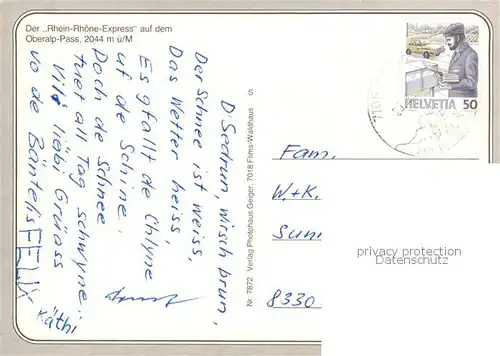 Der „Rhein-Rhône-Express" auf dem
Oberalp-Pass, 2044 m ü/M
D'Sedrun, wisch brun,
Der Schnee ist weiss,
Das Wetter heiss,
Es gfallt de Chlyne
uf de Schine.
Doch de Schnee
tuet all Tag schwyne;
Vill liebi Grüass
vo de Bäntelis
FELIX
Käthi
Nr. 7872 Verlag Photohaus Geiger, 7018 Flims-Waldhaus
S
HELVETIA 50
Fam.
W.+K.
8330
privacy protection
Datenschutz